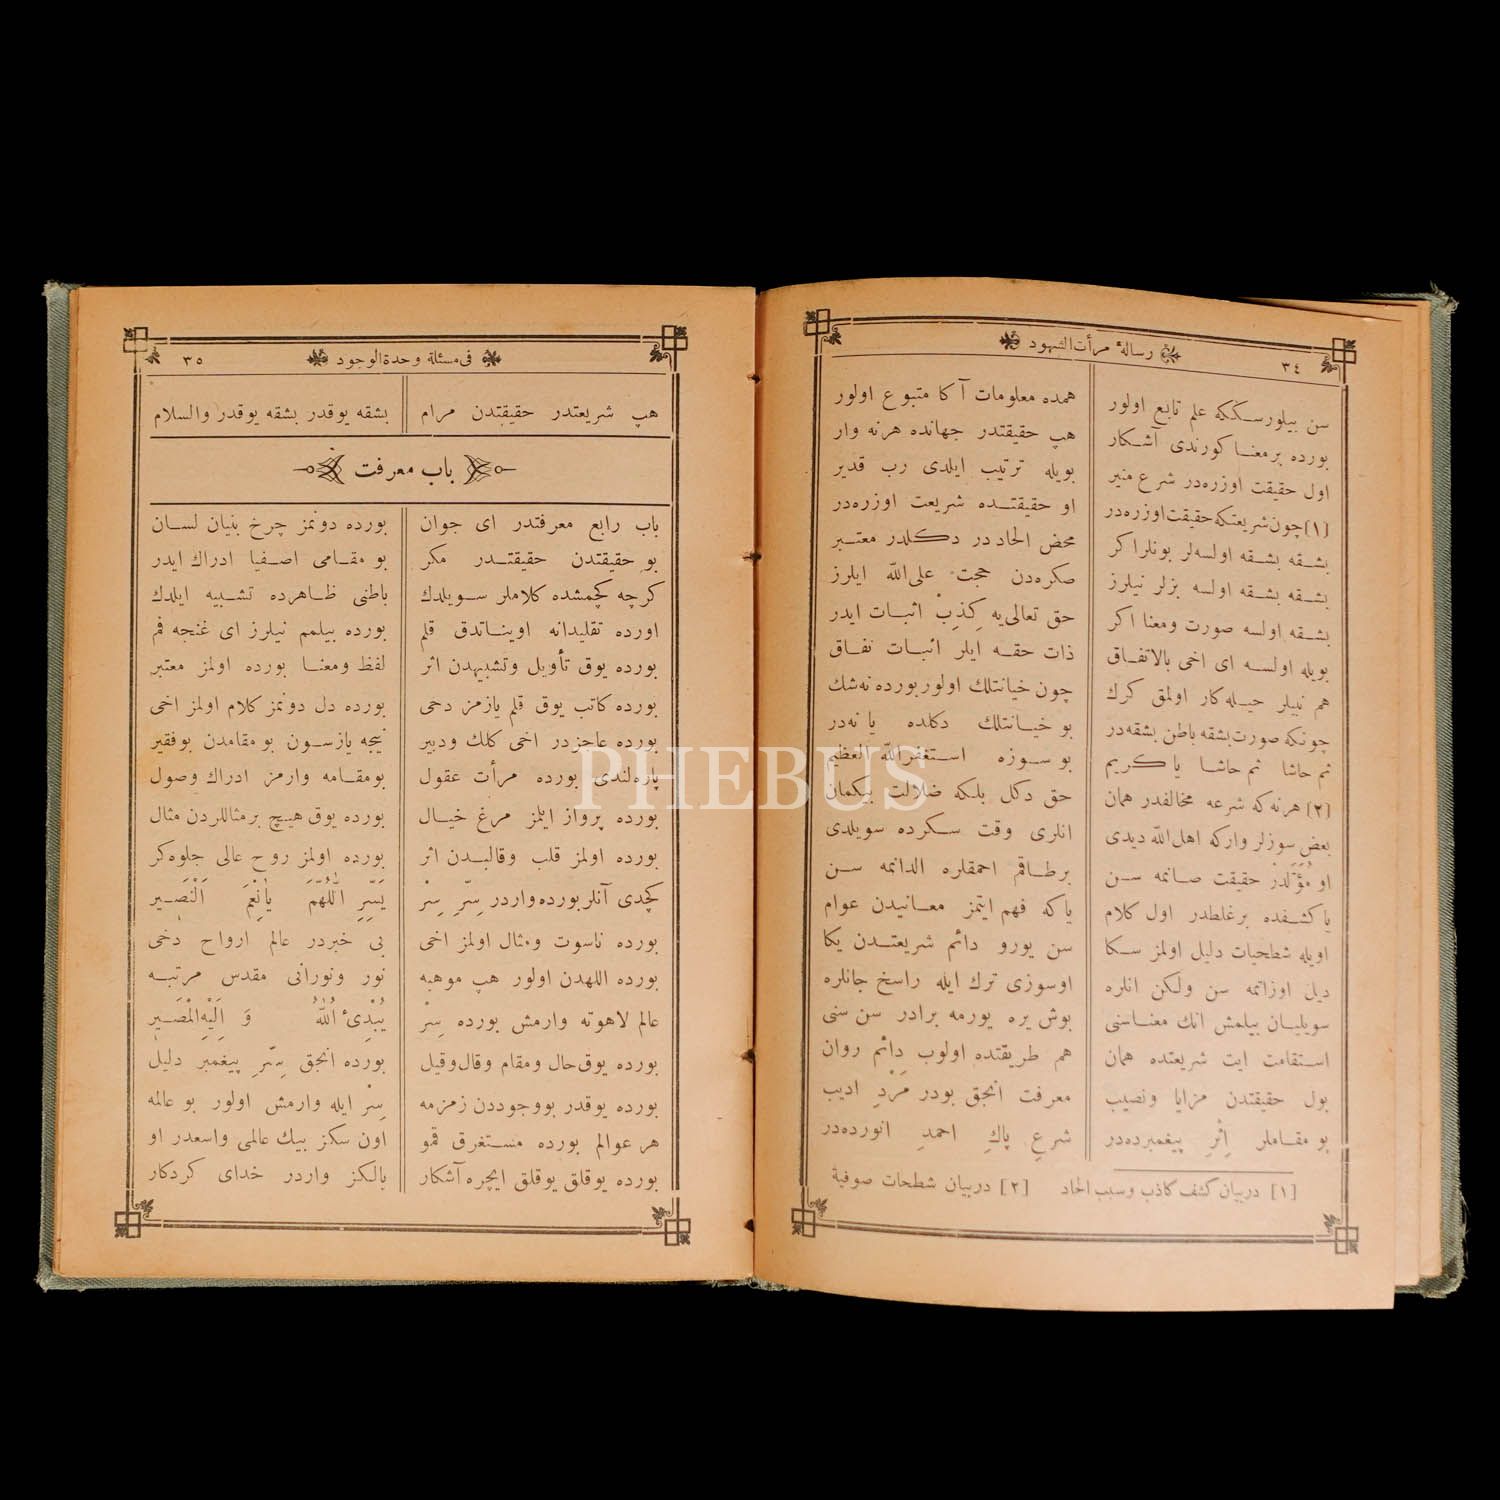 ٣٤ رسالهٔ مرأت الشهود
سن بيلورسكه علم تابع اولور همده معلومات آكا متبوع اولور
بورده بر معنا كورندى آشكار هپ حقيقتدر جهانده هرنه وار
اول حقيقت اوزره‌در شرع منير بويله ترتيب ايلدى رب قدير
[١] چون شريعتكه حقيقت اوزره‌در او حقيقتده شريعت اوزره‌در
بشقه بشقه اولسه‌لر بونلر اكر محض الحاددر دكلدر معتبر
بشقه بشقه اولسه بزلر نيلرز صكره‌دن حجت على الله ايلرز
بشقه اولسه صورت ومعنا اكر حق تعالى‌يه كذب اثبات ايدر
بويله اولسه اى اخى بالاتفاق ذات حقه ايلر اثبات نفاق
هم نيلر حيله‌كار اولمق كرك چون خيانتلك اولور بورده نه شك
چونكه صورت بشقه باطن بشقه‌در بو خيانتلك دكلده يا نه‌در
ثم حاشا ثم حاشا يا كريم بو سوزه استغفر الله العظيم
[٢] هرنه كه شرعه مخالفدر همان حق دكل بلكه ضلالت بيكمان
بعض سوزلر واركه اهل الله ديدى انلرى وقت سكرده سويلدى
او مؤولدر حقيقت صانمه سن برطاقم احمقلره الدانمه سن
يا كشفده بر غلطدر اول كلام ياكه فهم ايتمز معانيدن عوام
اويله شطحيات دليل اولمز سكا سن يورو دائم شريعتدن يكا
ديل اوزاتمه سن ولكن انلره اوسوزى ترك ايله راسخ جانلره
سويليان بيلمش انك معناسنى بوش يره يورمه برادر سن سنى
استقامت ايت شريعتده همان هم طريقتده اولوب دائم روان
بول حقيقتدن مزايا ونصيب معرفت انجق بودر مرد اديب
بو مقاملر اثر پيغمبرده‌در شرع پاك احمد انورده‌در
[١] دربيان كشف كاذب وسبب الحاد [٢] دربيان شطحات صوفية
فى مسئلة وحدة الوجود ٣٥
هپ شريعتدر حقيقتدن مرام بشقه يوقدر بشقه يوقدر والسلام
باب معرفت
باب رابع معرفتدر اى جوان بورده دونمز چرخ بنيان لسان
بو حقيقتدن حقيقتدر مكر بو مقامى اصفيا ادراك ايدر
كرچه كچمشده كلاملر سويلدك باطنى ظاهرده تشبيه ايلدك
اورده تقليدانه اويناتدق قلم بورده بيلمم نيلرز اى غنجه فم
بورده يوق تأويل وتشبيهدن اثر لفظ ومعنا بورده اولمز معتبر
بورده كاتب يوق قلم يازمز دحى بورده دل دونمز كلام اولمز اخى
بورده عاجزدر اخى كلك ودبير نيجه يازسون بو مقامدن بو فقير
پاره‌لندى بورده مرأت عقول بو مقامه وارمز ادراك وصول
بورده پرواز ايلمز مرغ خيال بورده يوق هيچ بر مثاللردن مثال
بورده اولمز قلب وقالبدن اثر بورده اولمز روح عالى جلوه‌كر
كچدى آنلر بورده واردر سِرِّ سِرْ يَسِّرِ اللّٰهُمَّ يا نِعْمَ النَّصير
بورده ناسوت ومثال اولمز اخى بى خبردر عالم ارواح دخى
بورده اللهدن اولور هپ موهبه نور ونورانى مقدس مرتبه
عالم لاهوته وارمش بورده سِرْ يُبْدِئُ اللّٰهُ وَ اِلَيْهِ الْمَصير
بورده يوق حال ومقام وقال وقيل بورده انجق سِرِّ پيغمبر دليل
بورده يوقدر بو وجوددن زمزمه سِرْ ايله وارمش اولور بو عالمه
هر عوالم بورده مستغرق قمو اون سكز بيك عالمى واسعدر او
بورده يوقلق يوقلق ايچره آشكار يالكز واردر خداى كردكار
PHEBUS